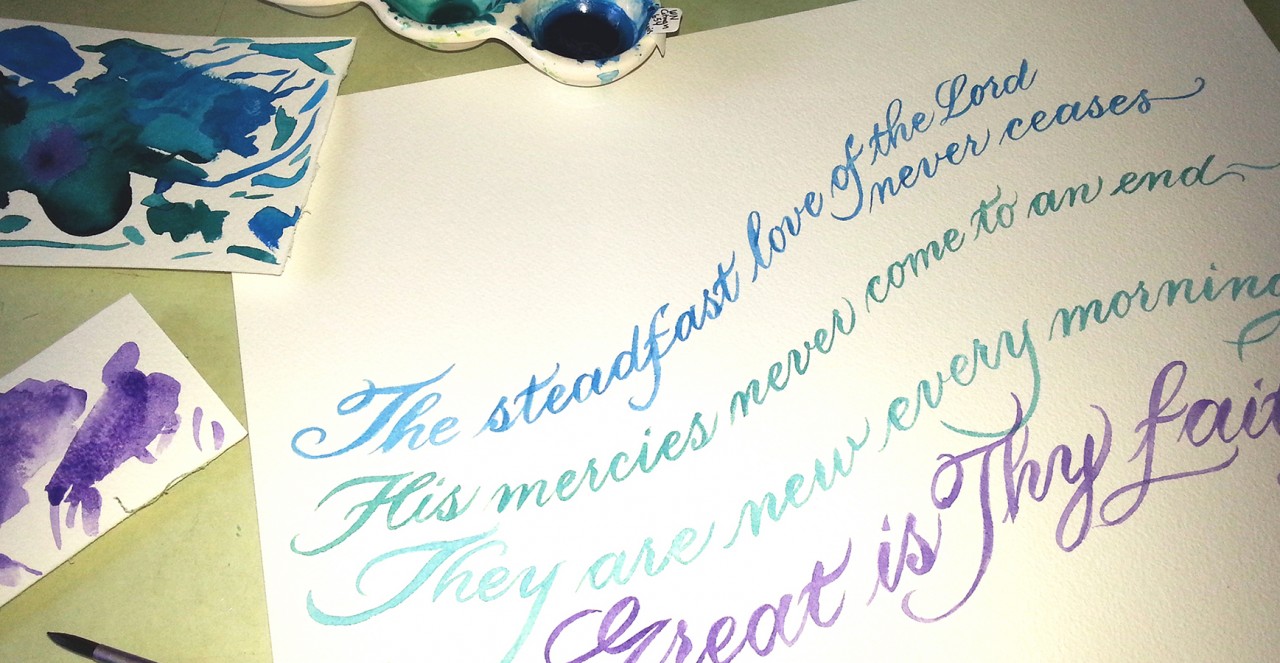 The steadfast love of the Lord
never ceases
His mercies never come to an end
They are new every morning
Great is Thy fait